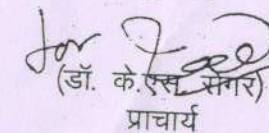 for
(डॉ. के.एस. सेंगर)
प्राचार्य